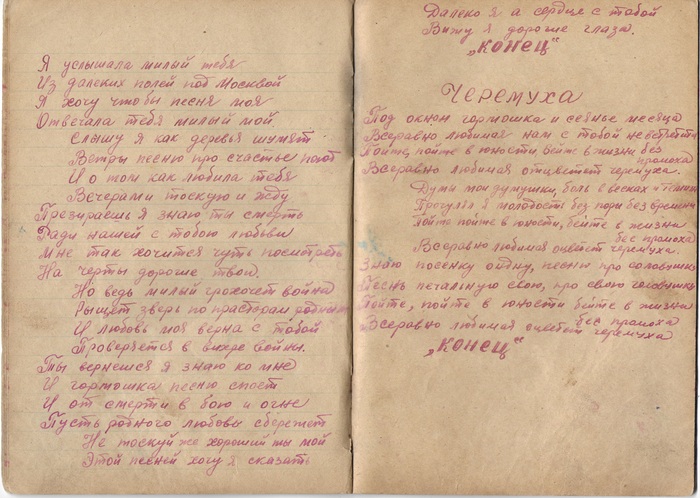 Я услышала милый тебя
Из далеких полей под Москвой
Я хочу чтобы песня моя
Отвечала тебя милый мой
Слышу я как деревья шумят
Ветры песню про счастье поют
И о том как любила тебя
Вечерами тоскую и жду
Презираешь я знаю ты смерть
Ради нашей с тобою любьви
Мне так хочится чуть посмотреть
На черты дорогие твои.
Но ведь милый грохочет война
Рыщет зверь по прасторам родным
И любовь моя верна с тобой
Проверяется в вихре войны.
Ты вернешся я знаю ко мне
И гармошка песню споет
И от смерти в бою и огне
Пусть родного любовь сбережет
Не тоскуй же хороший ты мой
Этой песней хочу я сказать
Далеко я а сердце с тобой
Вижу я дорогие глаза.
„конец"
Черемуха
Под окном гармошка и сеянье месяца
Всеравно любимая нам с тобой не
Пойте, пойте в юности, бейте в жизни без промоха
Всеравно любимая отцветет черемуха.
Думы мои думушки, боль в весках и
Прогулял я молодость без поры без времени
Пойте пойте в юности, бейте в жизни без промоха
Всеравно любимая оцветет черемуха.
Знаю песенку одну, песны про соловушку
Песнь печальную свою, про свою головушку
Пойте, пойте в юности бейте в жизни без промоха
Всеравно любимая оцветет черемуха
„конец"